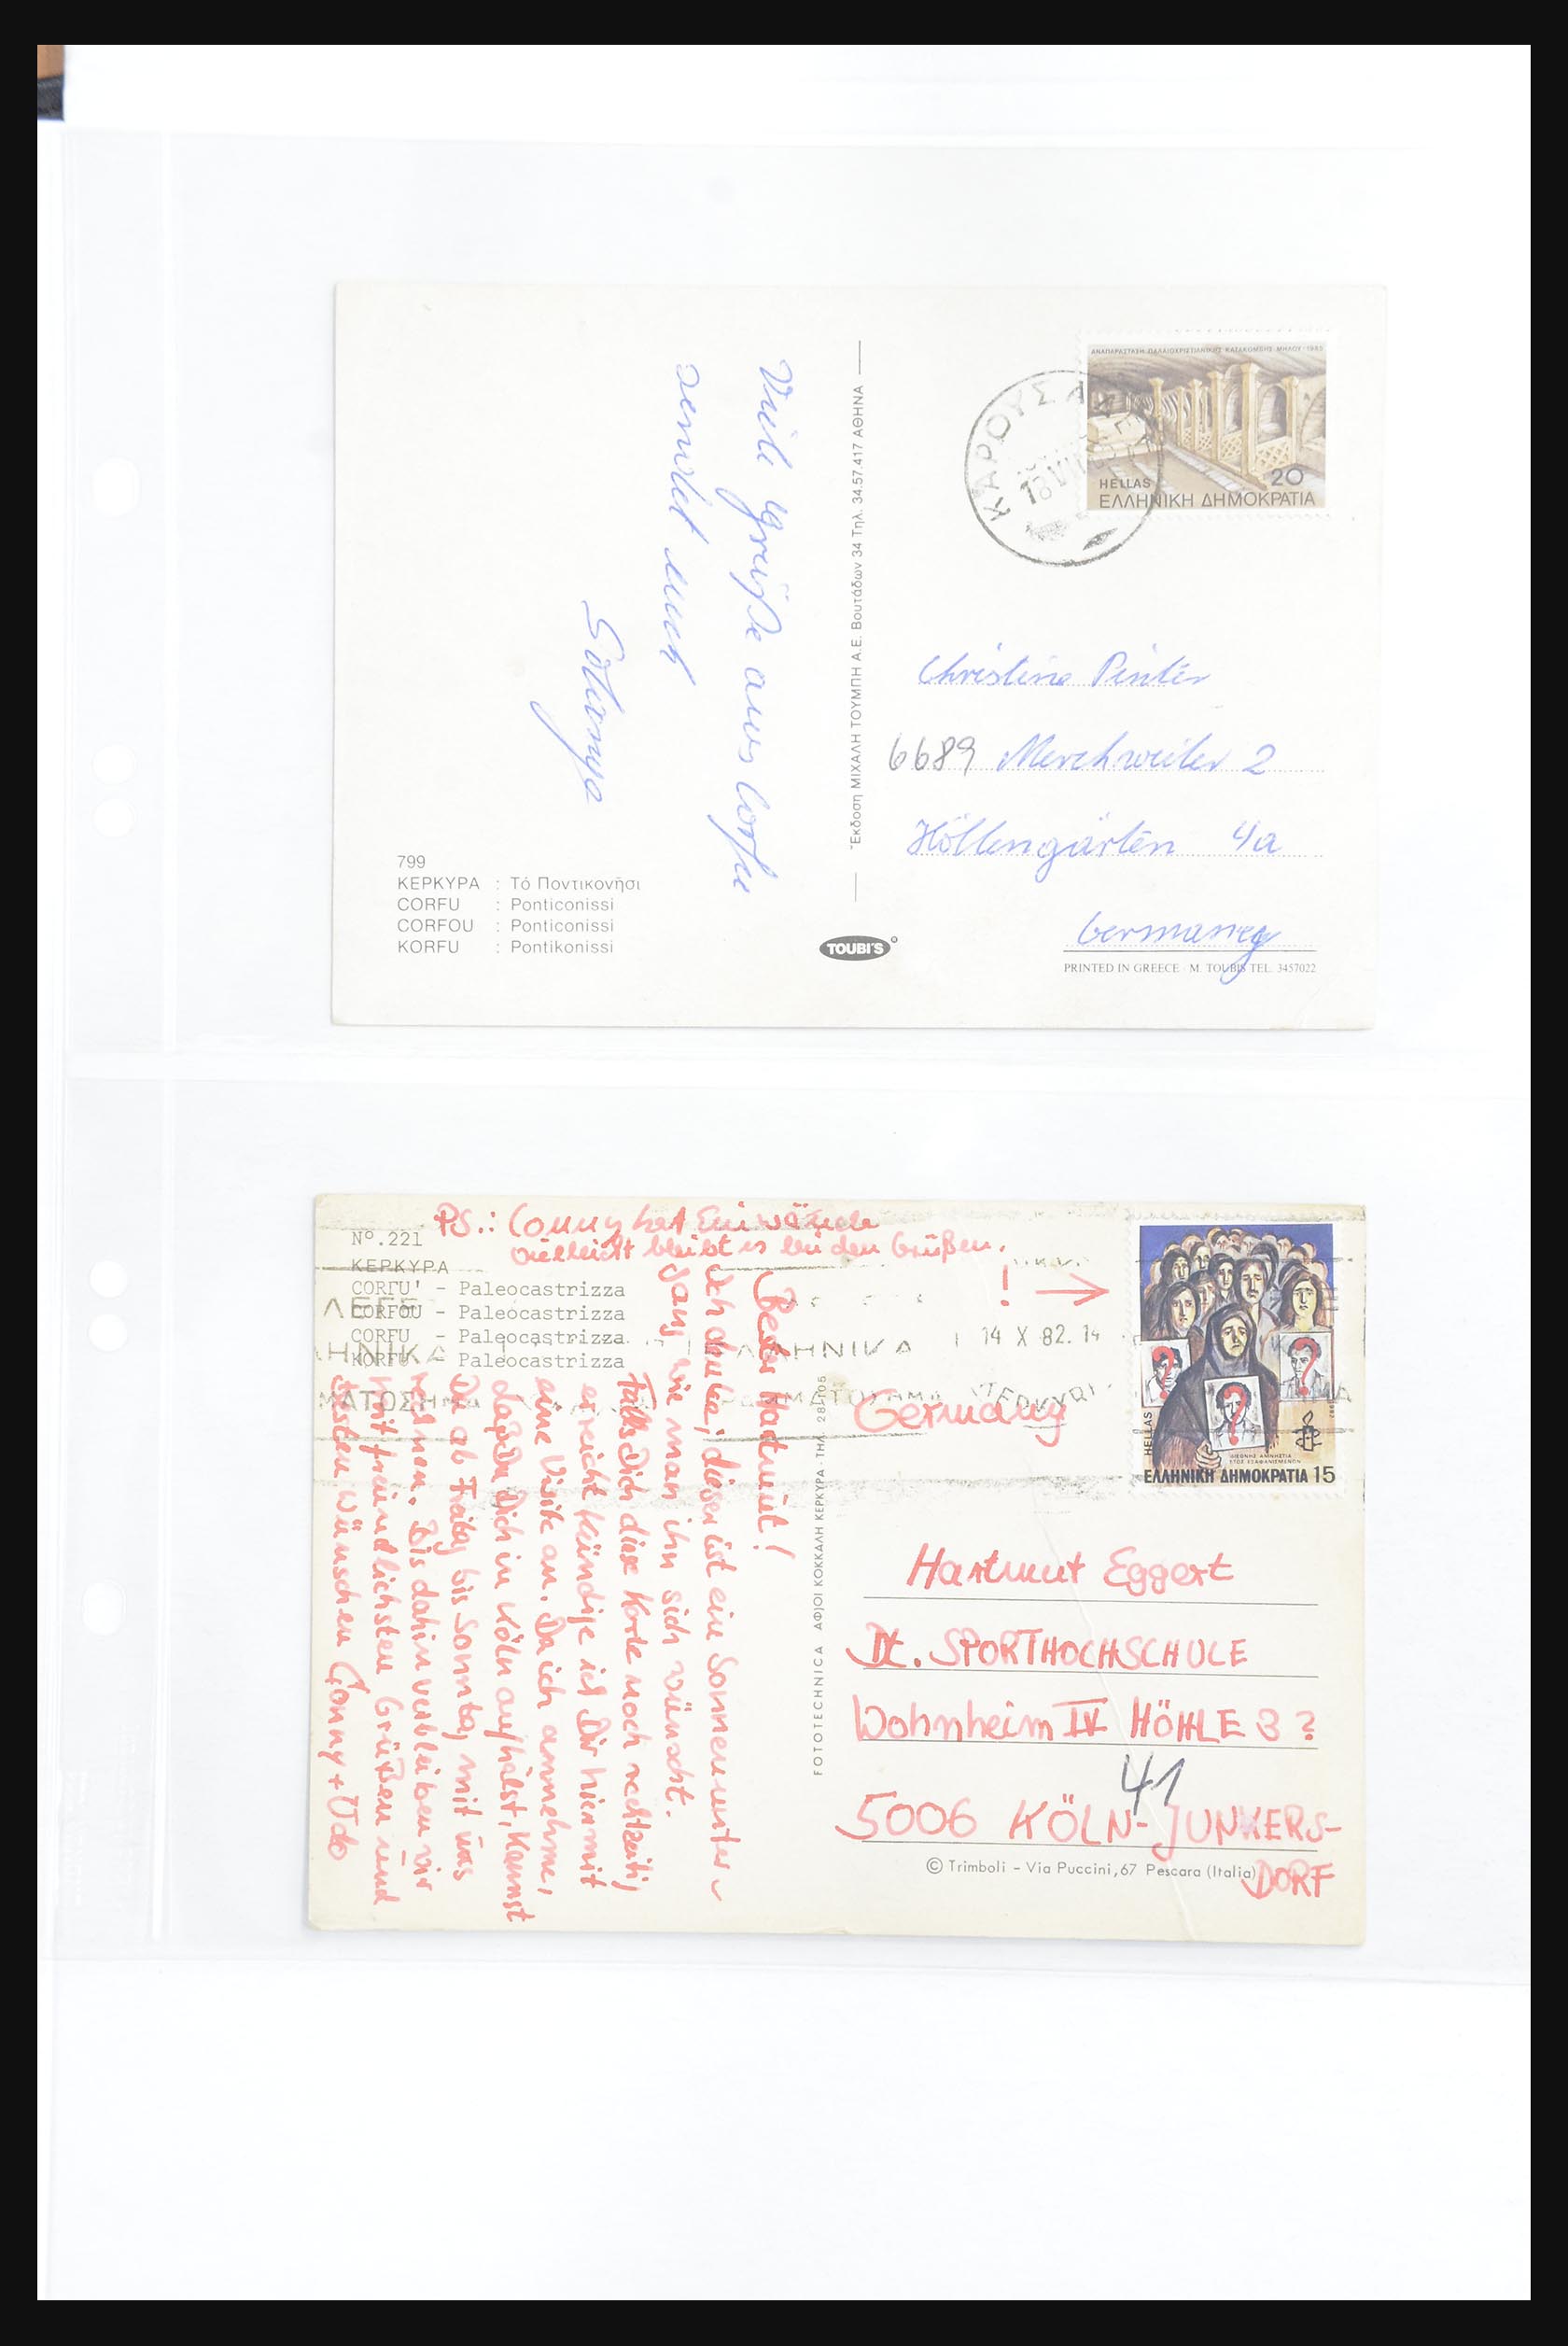 ΑΝΑΠΑΡΑΣΤΑΣΗ ΠΑΛΑΙΟΧΡΙΣΤΙΑΝΙΚΗΣ ΚΑΤΑΚΟΜΒΗΣ ΜΗΛΟΥ · 1985
HELLAS
20
ΕΛΛΗΝΙΚΗ ΔΗΜΟΚΡΑΤΙΑ
Viele Grüße aus Corfu
sendet euch
Christine Pinter
6689 Merchweiler 2
Höllengärten 4a
Germaney
PRINTED IN GREECE · M. TOUBIS TEL. 3457022
Ἔκδοση ΜΙΧΑΛΗ ΤΟΥΜΠΗ Α.Ε. Βουτάδων 34 Τηλ. 34.57.417 ΑΘΗΝΑ
TOUBI'S
799
ΚΕΡΚΥΡΑ : Τό Ποντικονῆσι
CORFU : Ponticonissi
CORFOU : Ponticonissi
KORFU : Pontikonissi
PS.: Conny hat Einwände
vielleicht bleibt es bei den Grüßen.
! →
Nº.221
ΚΕΡΚΥΡΑ
CORFU' - Paleocastrizza
CORFOU - Paleocastrizza
CORFU - Paleocastrizza
KORFU - Paleocastrizza
14 X 82. 14
Bester Hartmut!
Ich denke, dieser ist ein Sonnenunter-
gang wie man ihn sich wünscht.
Falls Dich diese Karte noch rechtzeitig
erreicht kündige ich Dir hiermit
eine Visite an. Da ich annehme,
daß Du Dich in Köln aufhälst, kannst
Du ab Freitag bis Sonntag mit uns
rechnen. Bis dahin verbleiben wir
mit freundlichsten Grüßen und
besten Wünschen Conny + Udo
FOTOTECHNICA ΑΦ)ΟΙ ΚΟΚΚΑΛΗ ΚΕΡΚΥΡΑ · ΤΗΛ. 28-105
HELLAS
ΔΙΕΘΝΗΣ ΑΜΝΗΣΤΙΑ
ΕΤΟΣ ΕΞΑΦΑΝΙΣΜΕΝΩΝ
ΕΛΛΗΝΙΚΗ ΔΗΜΟΚΡΑΤΙΑ 15
Germany
Hartmut Eggert
Dt. SPORTHOCHSCHULE
Wohnheim IV HÖHLE 3?
41
5006 KÖLN-JUNKERS-
DORF
© Trimboli - Via Puccini, 67 Pescara (Italia)